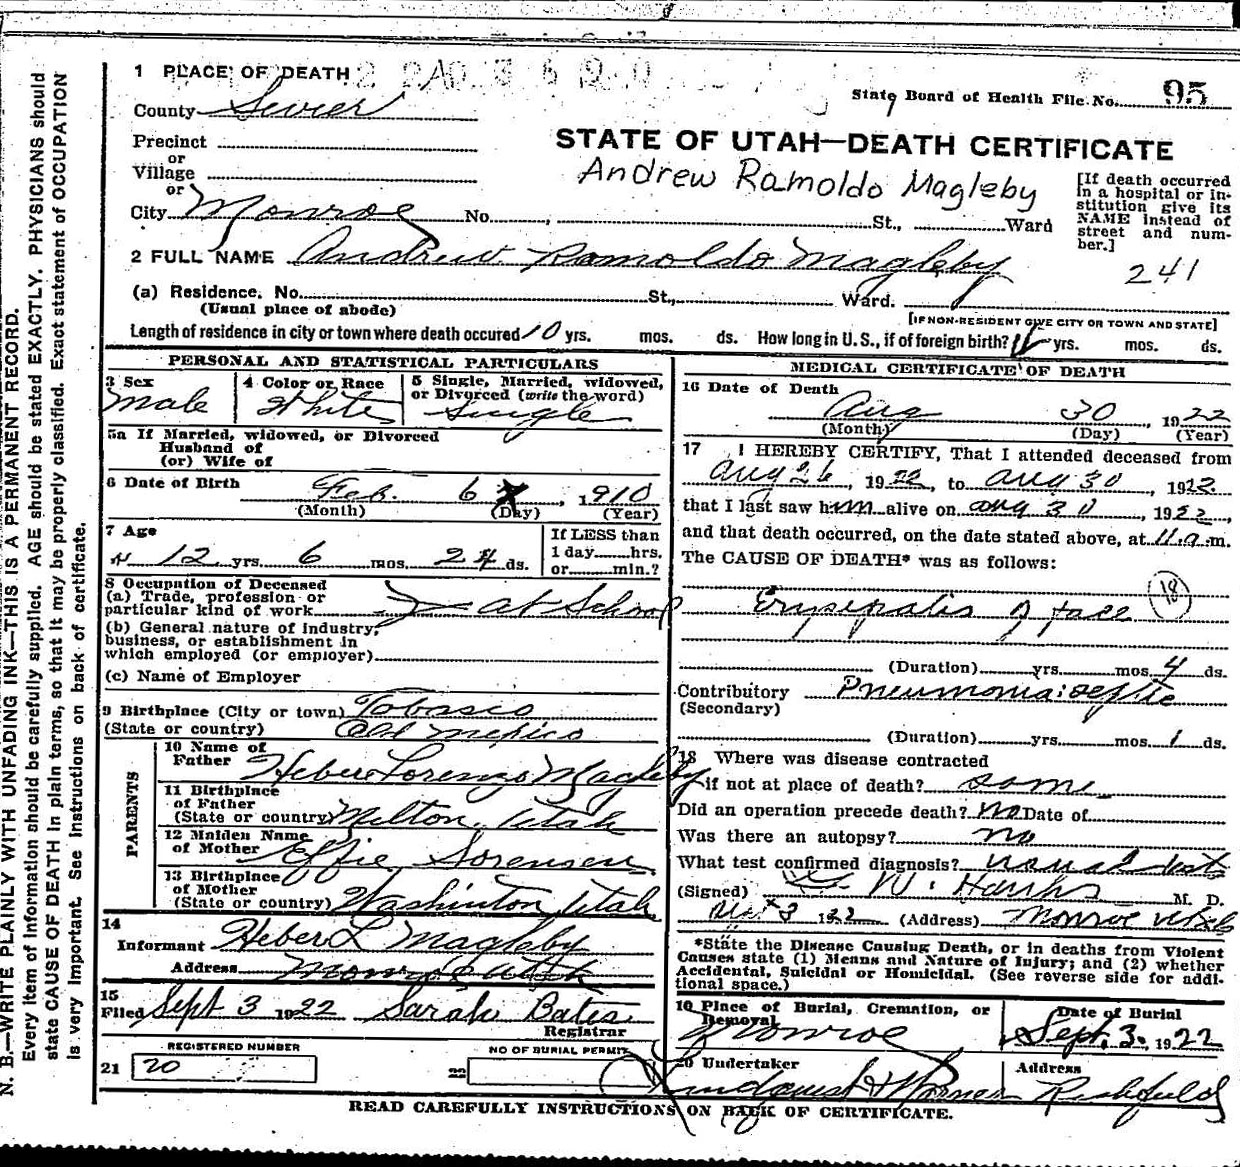 1 PLACE OF DEATH
State Board of Health File No. 95
County Sevier
STATE OF UTAH—DEATH CERTIFICATE
Precinct
or
Village
or
Andrew Ramoldo Magleby
[If death occurred
in a hospital or in-
stitution give its
NAME instead of
street and num-
ber.]
City Monroe No. St., Ward
2 FULL NAME Andrew Ramoldo Magleby
241
(a) Residence. No. St., Ward.
(Usual place of abode)
[IF NON-RESIDENT GIVE CITY OR TOWN AND STATE]
Length of residence in city or town where death occured 10 yrs. mos. ds. How long in U. S., if of foreign birth? yrs. mos. ds.
PERSONAL AND STATISTICAL PARTICULARS
3 Sex
Male
4 Color or Race
White
5 Single, Married, widowed,
or Divorced (write the word)
Single
5a If Married, widowed, or Divorced
Husband of
(or) Wife of
6 Date of Birth Feb. 6 1910
(Month) (Day) (Year)
7 Age
12 yrs. 6 mos. 24 ds.
If LESS than
1 day hrs.
or min.?
8 Occupation of Deceased
(a) Trade, profession or
particular kind of work at School
(b) General nature of industry,
business, or establishment in
which employed (or employer)
(c) Name of Employer
9 Birthplace (City or town) Tobasco
(State or country) Old Mexico
PARENTS
10 Name of
Father Heber Lorenzo Magleby
11 Birthplace
of Father
(State or country) Milton, Utah
12 Maiden Name
of Mother Effie Sorensen
13 Birthplace
of Mother
(State or country) Washinton Utah
14
Informant Heber L Magleby
Address Monroe Utah
15
Filed Sept 3 1922 Sarah Bates
Registrar
REGISTERED NUMBER
21 20
NO OF BURIAL PERMIT
22
MEDICAL CERTIFICATE OF DEATH
16 Date of Death
Aug 30, 1922
(Month) (Day) (Year)
17 I HEREBY CERTIFY, That I attended deceased from
Aug 26 1922, to Aug 30, 1922
that I last saw him alive on Aug 30, 1922,
and that death occurred, on the date stated above, at 11.a.m.
The CAUSE OF DEATH* was as follows:
18
Erysepalis of face
(Duration) yrs. mos. 4 ds.
Contributory Pneumonia: septic
(Secondary)
(Duration) yrs. mos. 1 ds.
18 Where was disease contracted
if not at place of death? same
Did an operation precede death? no Date of
Was there an autopsy? no
What test confirmed diagnosis? usual
(Signed) W. Hanks M. D.
3 1922 (Address) Monroe Utah
*State the Disease Causing Death, or in deaths from Violent
Causes state (1) Means and Nature of Injury; and (2) whether
Accidental, Suicidal or Homicidal. (See reverse side for addi-
tional space.)
19 Place of Burial, Cremation, or
Removal
Monroe
Date of Burial
Sept. 3. 1922
20 Undertaker
Address
Richfield
READ CAREFULLY INSTRUCTIONS ON BACK OF CERTIFICATE.
N. B.—WRITE PLAINLY WITH UNFADING INK—THIS IS A PERMANENT RECORD.
Every item of information should be carefully supplied. AGE should be stated EXACTLY. PHYSICIANS should
state CAUSE OF DEATH in plain terms, so that it may be properly classified. Exact statement of OCCUPATION
is very important. See instructions on back of certificate.